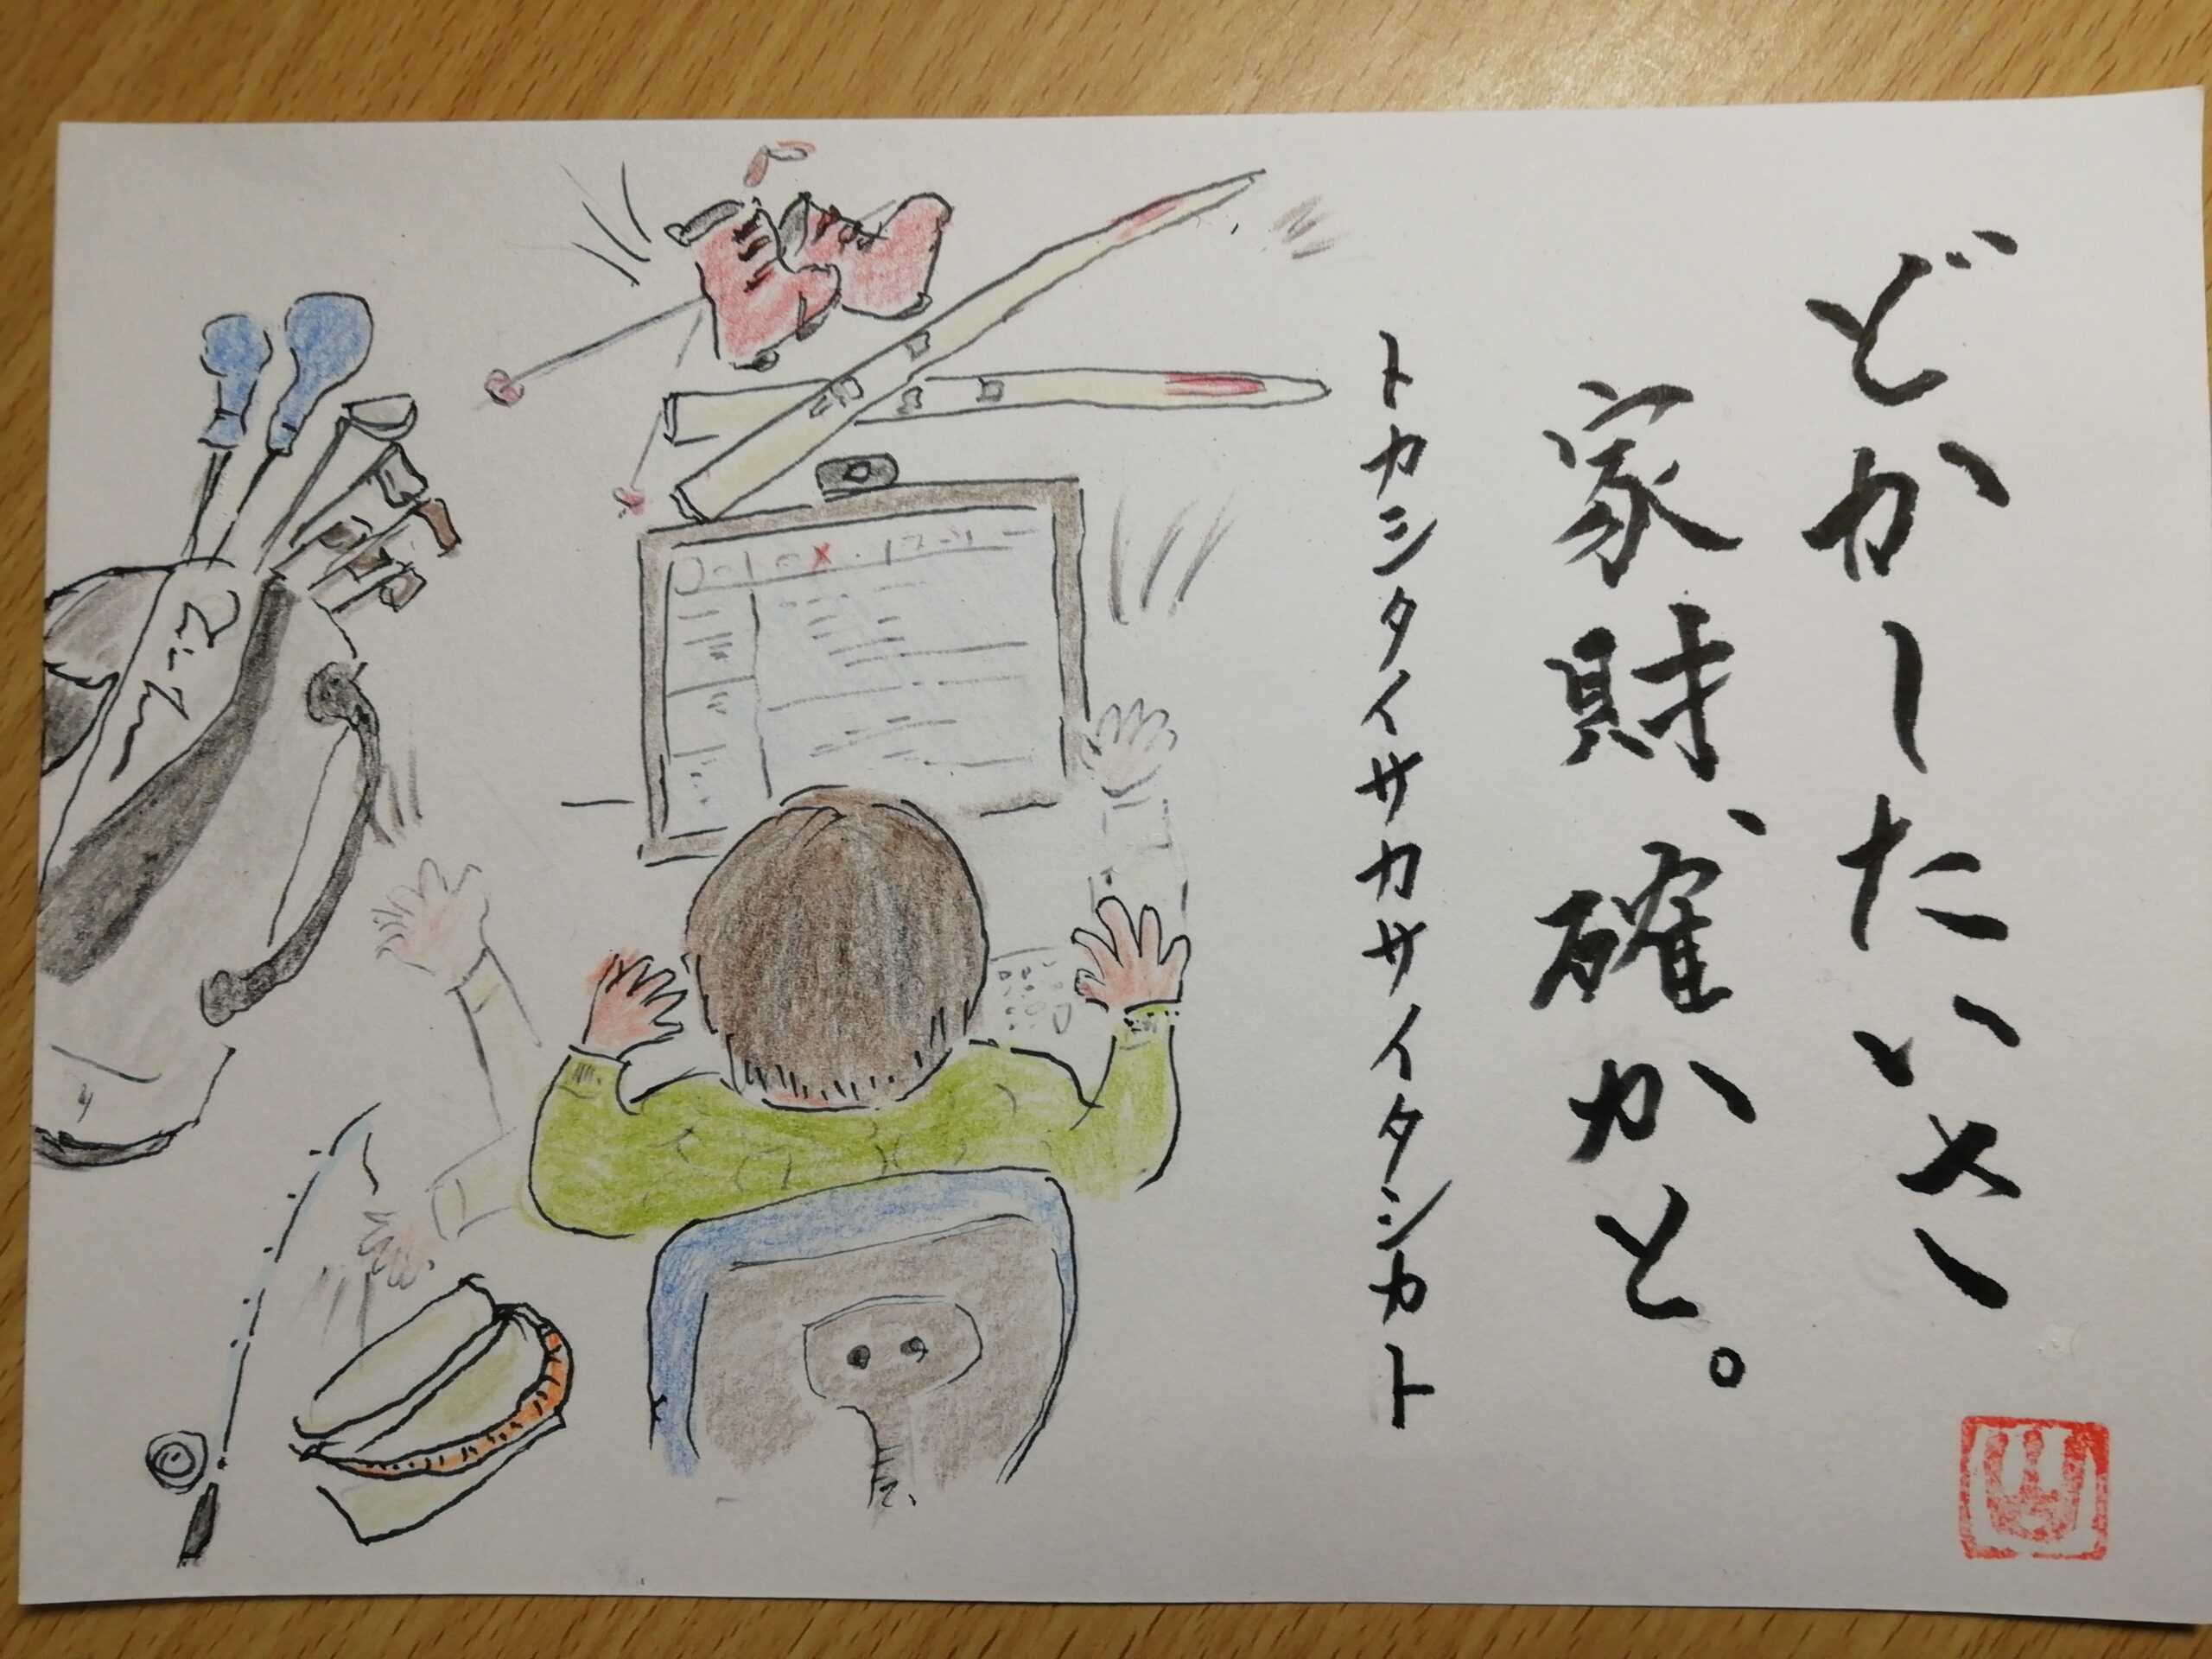 どかしたいさ
家財、確かと。
トカシタイサカサイタシカト